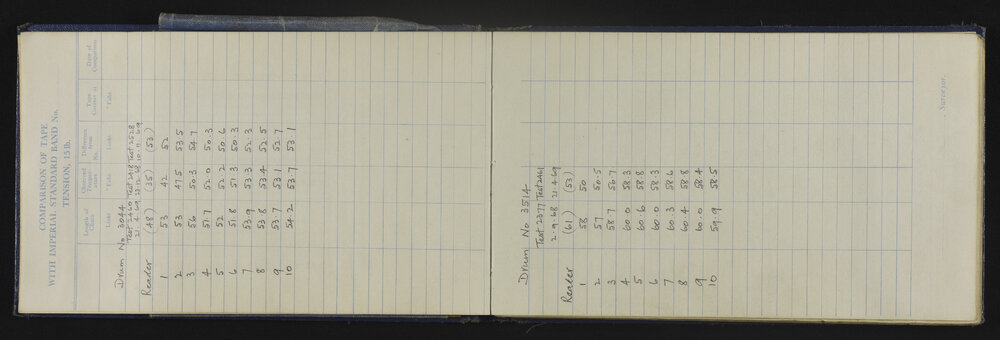 COMPARISON OF TAPE
WITH IMPERIAL STANDARD BAND No.
TENSION, 15 lb.
Length of Chain Observed Temper-ature Difference from No. Tape Correct at Date of Comparison
Links °Fahr. Links °Fahr.
Drum No 3044
Test 2460 Test 2418 Test 2528
21.4.69
Reader (48) (35) (53)
1 53 42 52
2 53 47.5 53.5
3 56 50.3 54.7
4 51.7 52.0 50.3
5 52 52.2 50.6
6 51.8 51.3 50.3
7 53.9 53.3 52.3
8 53.8 53.4 52.5
9 53.7 53.1 52.7
10 54.2 53.7 53.1
Drum No 3514
Test 2377 Test 2461
2.9.68 21.4.69
Reader (61) (53)
1 58 50
2 57 50.5
3 58.7 56.7
4 60.0 58.3
5 60.6 58.8
6 60.0 58.3
7 60.3 58.6
8 60.4 58.8
9 60.0 58.4
10 59.9 58.5
Surveyor.